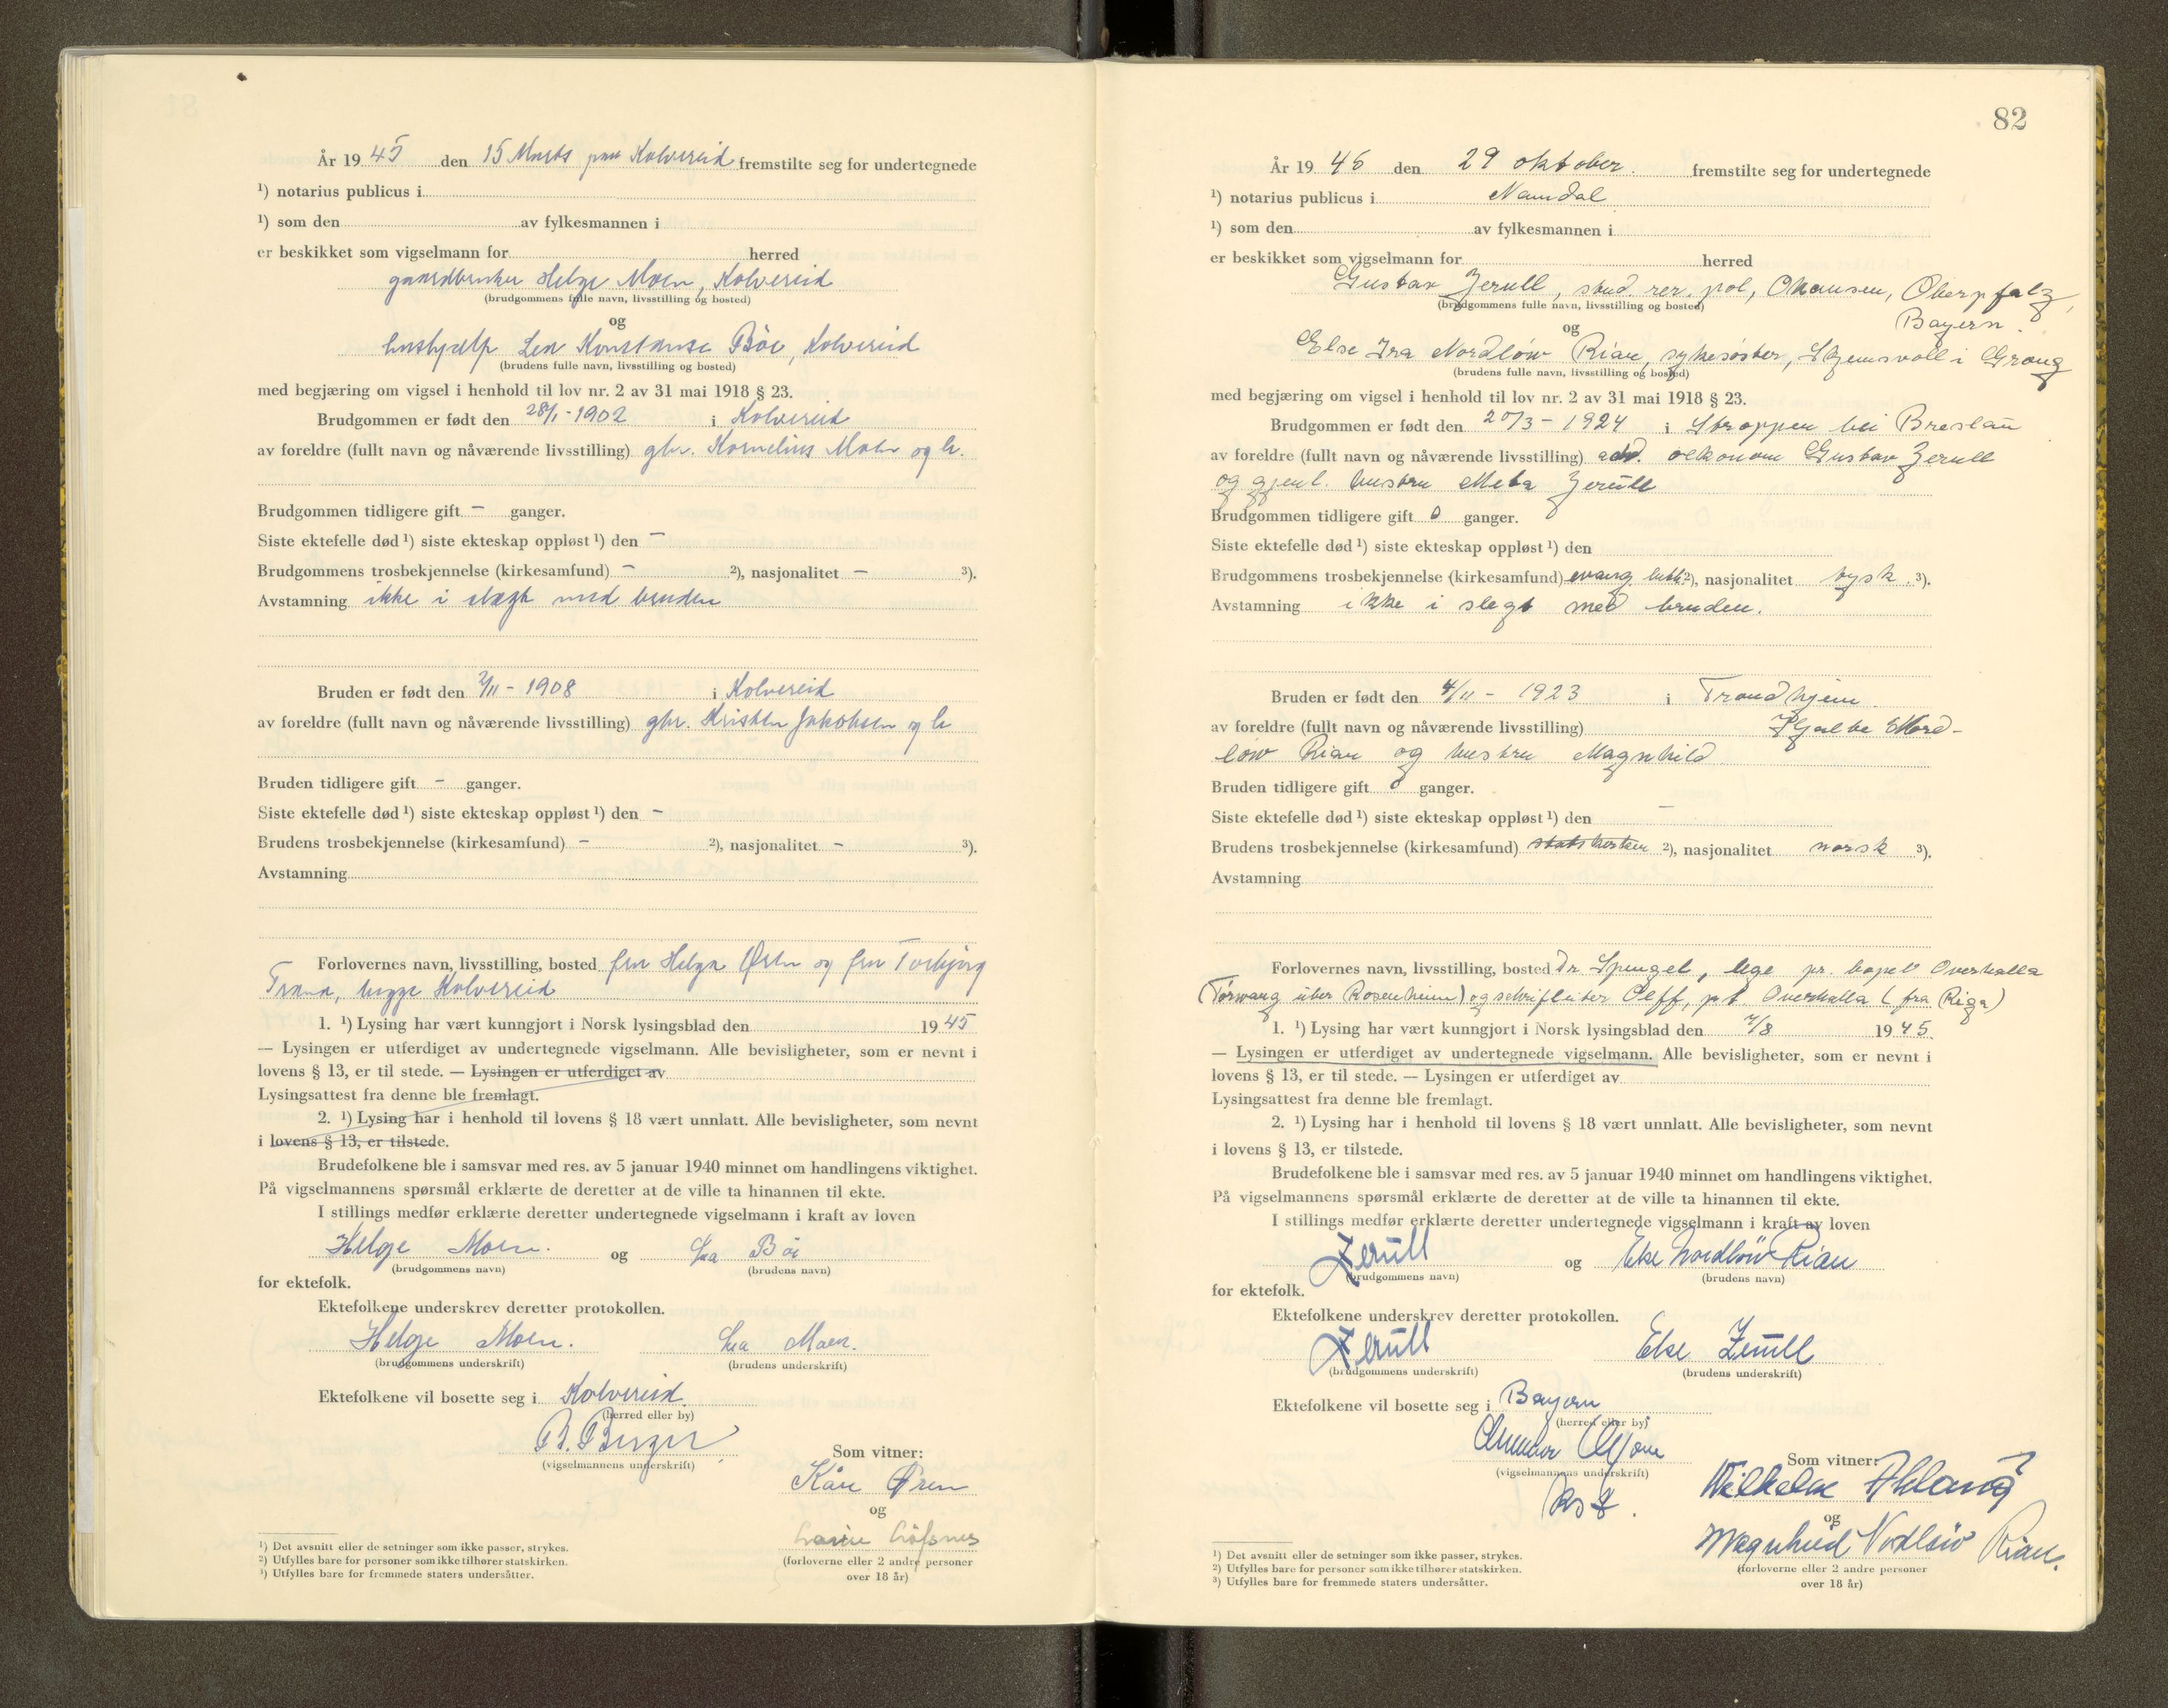 År 19 45 den 15 Marts paa Kolvereid fremstilte seg for undertegnede
¹) notarius publicus i
¹) som den av fylkesmannen i
er beskikket som vigselmann for herred
gaardbruker Helge Moen, Kolvereid
(brudgommens fulle navn, livsstilling og bosted)
og
hushjelp Lea Konstanse Böe, Kolvereid
(brudens fulle navn, livsstilling og bosted)
med begjæring om vigsel i henhold til lov nr. 2 av 31 mai 1918 § 23.
Brudgommen er født den 28/1-1902 i Kolvereid
av foreldre (fullt navn og nåværende livsstilling) gbr. Kornelius Moen og h.
Brudgommen tidligere gift – ganger.
Siste ektefelle død ¹) siste ekteskap oppløst ¹) den –
Brudgommens trosbekjennelse (kirkesamfund) – ²), nasjonalitet – ³).
Avstamning ikke i slægt med bruden
Bruden er født den 2/11-1908 i Kolvereid
av foreldre (fullt navn og nåværende livsstilling) gbr. Kristen Jakobsen og h
Bruden tidligere gift – ganger.
Siste ektefelle død ¹) siste ekteskap oppløst ¹) den –
Brudens trosbekjennelse (kirkesamfund) – ²), nasjonalitet – ³).
Avstamning
Forlovernes navn, livsstilling, bosted fru Helga Øren og fru Torbjørg
begge Kolvereid
1. ¹) Lysing har vært kunngjort i Norsk lysingsblad den 19 45
— Lysingen er utferdiget av undertegnede vigselmann. Alle bevisligheter, som er nevnt i
lovens § 13, er til stede. — Lysingen er utferdiget av
Lysingsattest fra denne ble fremlagt.
2. ¹) Lysing har i henhold til lovens § 18 vært unnlatt. Alle bevisligheter, som nevnt
i lovens § 13, er tilstede.
Brudefolkene ble i samsvar med res. av 5 januar 1940 minnet om handlingens viktighet.
På vigselmannens spørsmål erklærte de deretter at de ville ta hinannen til ekte.
I stillings medfør erklærte deretter undertegnede vigselmann i kraft av loven
Helge Moen. og Lea Böe
(brudgommens navn) (brudens navn)
for ektefolk.
Ektefolkene underskrev deretter protokollen.
Helge Moen. Lea Moen.
(brudgommens underskrift) (brudens underskrift)
Ektefolkene vil bosette seg i Kolvereid.
(herred eller by)
B. Berger
(vigselmannens underskrift)
Som vitner:
Kåre Øren
og
(forloverne eller 2 andre personer
over 18 år)
¹) Det avsnitt eller de setninger som ikke passer, strykes.
²) Utfylles bare for personer som ikke tilhører statskirken.
³) Utfylles bare for fremmede staters undersåtter.
82
År 19 45 den 29 oktober. fremstilte seg for undertegnede
¹) notarius publicus i Namdal
¹) som den av fylkesmannen i
er beskikket som vigselmann for herred
Gustav Zerull, stud. rer. pol, Oberpfalz,
(brudgommens fulle navn, livsstilling og bosted)
Bayern.
og
Else Ira Nordlöw Rian, sykesøster, i Grong
(brudens fulle navn, livsstilling og bosted)
med begjæring om vigsel i henhold til lov nr. 2 av 31 mai 1918 § 23.
Brudgommen er født den 20/3-1924 i Stroppen bei Breslau
av foreldre (fullt navn og nåværende livsstilling) oekonom Gustav Zerull
og gjenl. hustru Meta Zerull
Brudgommen tidligere gift 0 ganger.
Siste ektefelle død ¹) siste ekteskap oppløst ¹) den
Brudgommens trosbekjennelse (kirkesamfund) evang. luth. ²), nasjonalitet tysk. ³).
Avstamning ikke i slegt med bruden.
Bruden er født den 4/11-1923 i Trondhjem.
av foreldre (fullt navn og nåværende livsstilling) Nord-
löw Rian og hustru Magnhild
Bruden tidligere gift 0 ganger.
Siste ektefelle død ¹) siste ekteskap oppløst ¹) den –
Brudens trosbekjennelse (kirkesamfund) statskirken ²), nasjonalitet norsk ³).
Avstamning
Forlovernes navn, livsstilling, bosted Dr. Spengel, lege Overhalla
(Törwang über Rosenheim) og schriftleiter Oleff, p.t. Overhalla (fra Riga)
1. ¹) Lysing har vært kunngjort i Norsk lysingsblad den 7/8 19 45.
— Lysingen er utferdiget av undertegnede vigselmann. Alle bevisligheter, som er nevnt i
lovens § 13, er til stede. — Lysingen er utferdiget av
Lysingsattest fra denne ble fremlagt.
2. ¹) Lysing har i henhold til lovens § 18 vært unnlatt. Alle bevisligheter, som nevnt
i lovens § 13, er tilstede.
Brudefolkene ble i samsvar med res. av 5 januar 1940 minnet om handlingens viktighet.
På vigselmannens spørsmål erklærte de deretter at de ville ta hinannen til ekte.
I stillings medfør erklærte deretter undertegnede vigselmann i kraft av loven
Zerull og Else Nordlöw Rian
(brudgommens navn) (brudens navn)
for ektefolk.
Ektefolkene underskrev deretter protokollen.
Zerull Else Zerull
(brudgommens underskrift) (brudens underskrift)
Ektefolkene vil bosette seg i Bayern
(herred eller by)
(vigselmannens underskrift)
Som vitner:
Wilhelm
og
Magnhild Nordlöw Rian.
(forloverne eller 2 andre personer
over 18 år)
¹) Det avsnitt eller de setninger som ikke passer, strykes.
²) Utfylles bare for personer som ikke tilhører statskirken.
³) Utfylles bare for fremmede staters undersåtter.